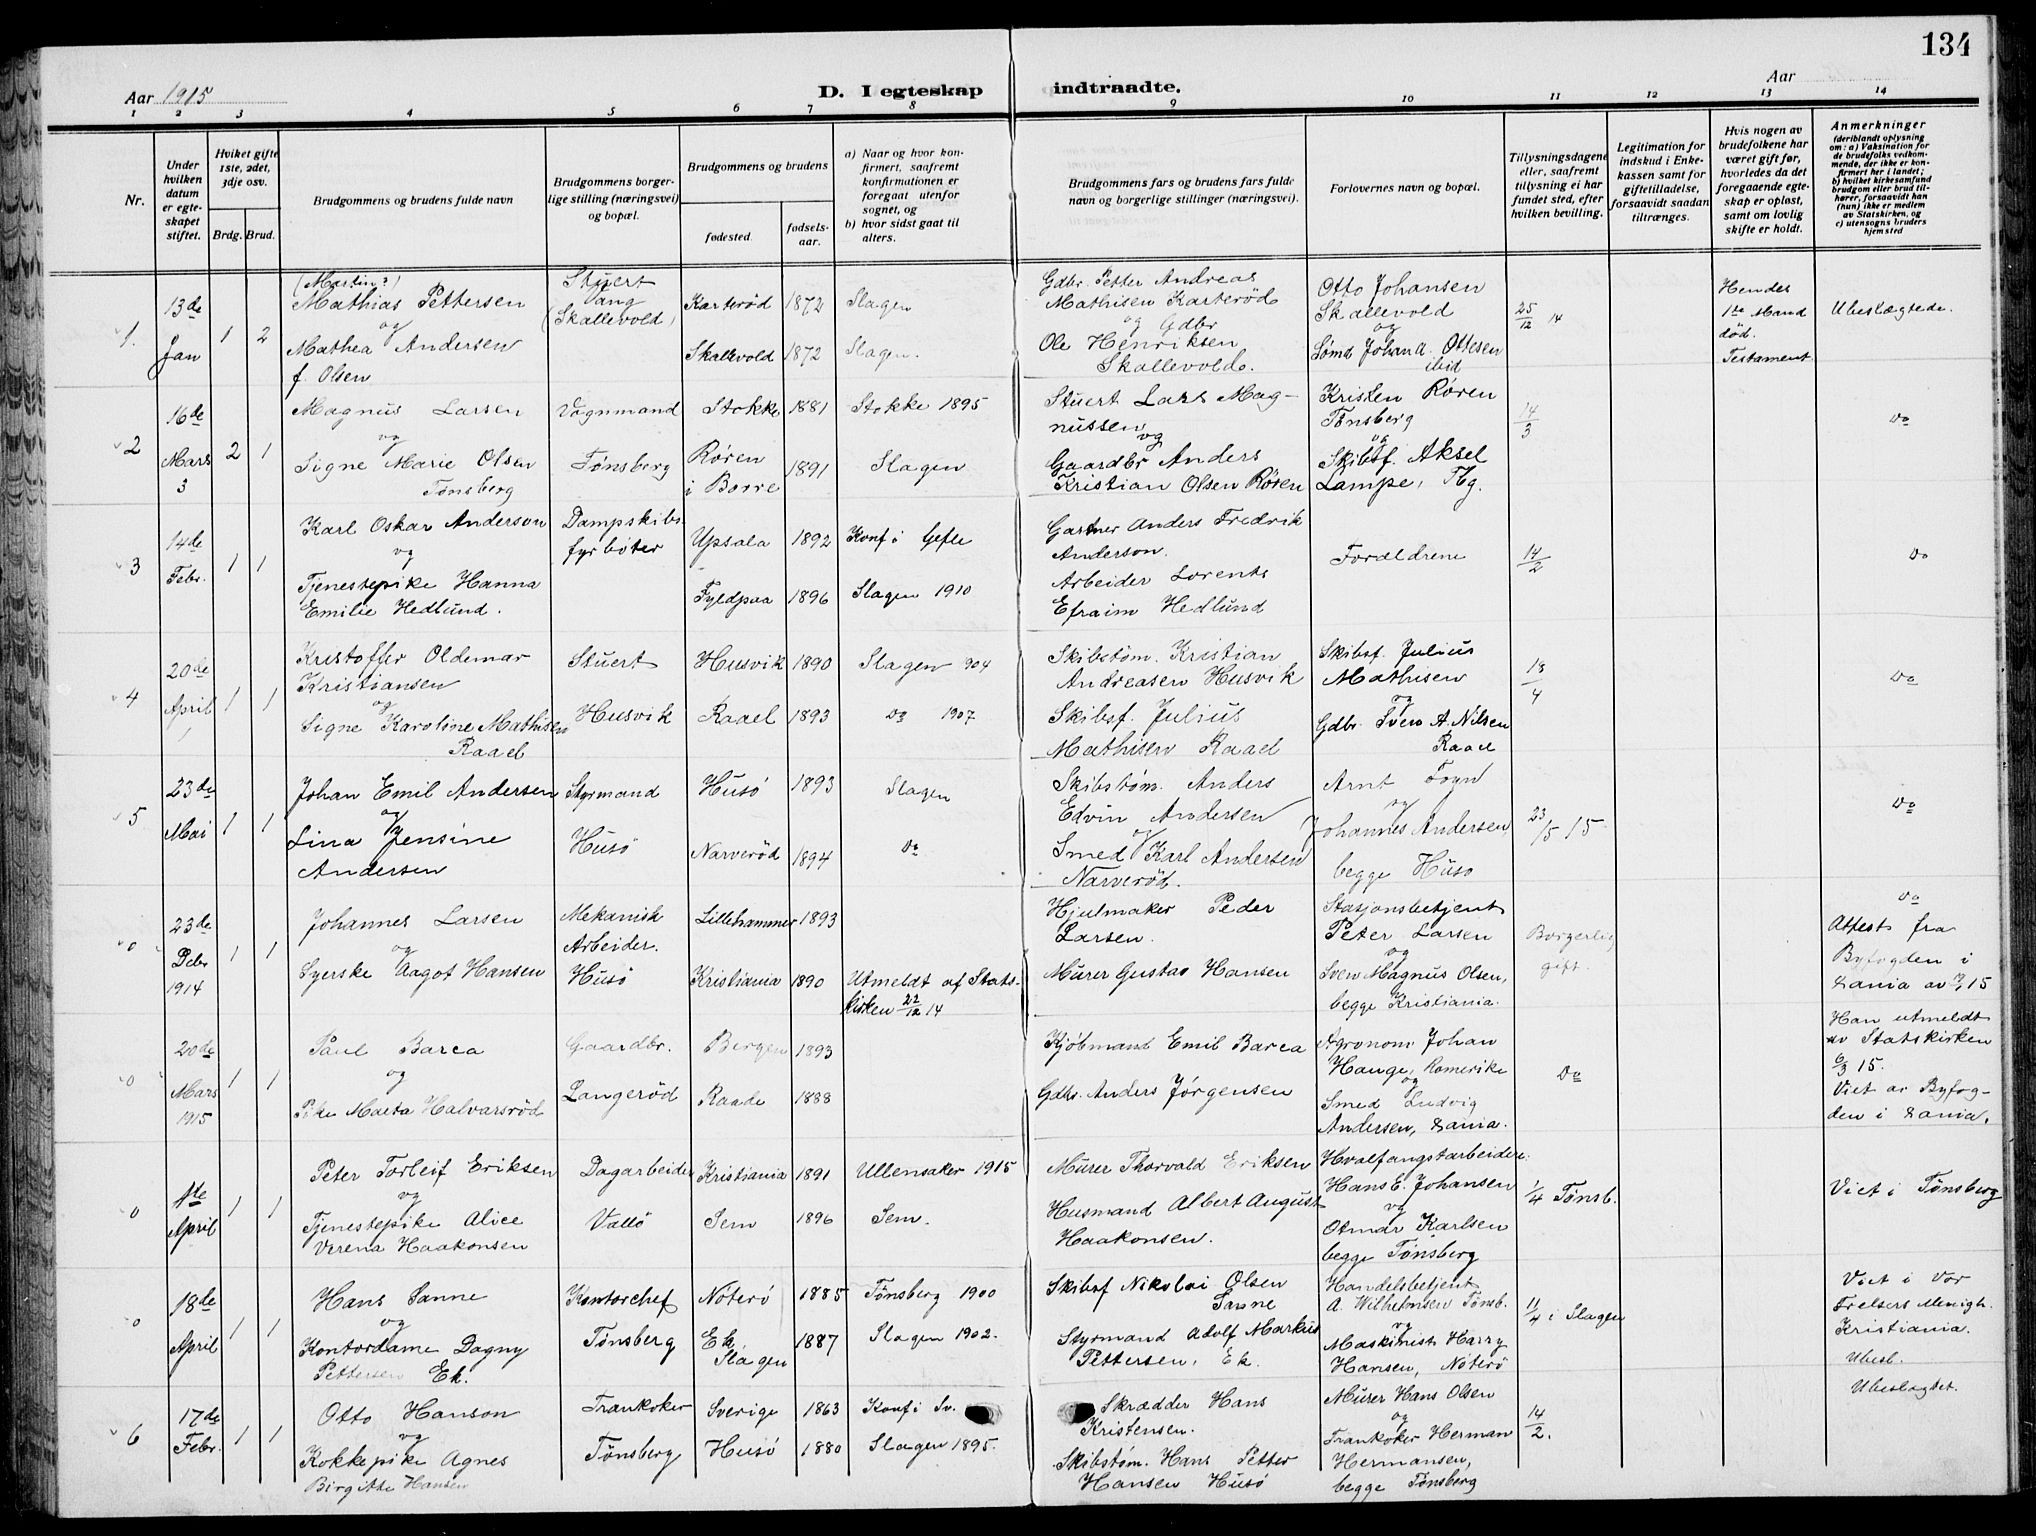 134
Aar 1915
D. I egteskap
indtraadte.
Aar
1 2 3 4 5 6 7 8 9 10 11 12 13 14
Nr.
Under hvilken datum er egteskapet stiftet.
Hviket gifte 1ste, 2det, 3dje osv.
Brdg. Brud.
Brudgommens og brudens fulde navn
Brudgommens borgerlige stilling (næringsvei) og bopæl.
Brudgommens og brudens
fødested.
fødselsaar.
a) Naar og hvor konfirmert, saafremt konfirmationen er foregaat utenfor sognet, og
b) hvor sidst gaat til alters.
Brudgommens fars og brudens fars fulde navn og borgerlige stillinger (næringsvei).
Forlovernes navn og bopæl.
Tillysningsdagene eller, saafremt tillysning ei har fundet sted, efter hvilken bevilling.
Legitimation for indskud i Enkekassen samt for giftetilladelse, forsaavidt saadan tiltrænges.
Hvis nogen av brudefolkene har været gift før, hvorledes da det foregaaende egteskap er opløst, samt om lovlig skifte er holdt.
Anmerkninger (deriblandt oplysning om: a) Vaksination for de brudefolks vedkommende, der ikke er konfirmert her i landet; b) hvilket kirkesamfund brudgom eller brud tilhører, forsaavidt han (hun) ikke er medlem av Statskirken, og c) utensogns bruders hjemsted
1. 13de Jan 1 2
(Martin?)
Mathias Pettersen
og
Mathea Andersen
f. Olsen
Stuert
(Skallevold)
Karterød 1872 Slagen
Skallevold 1872 Slagen.
Gdbr. Petter Andreas
Mathisen Karterød
og Gdbr
Ole Henriksen
Skallevold.
Otto Johansen
Skallevold
og
Sømd Johand. Ottesen
ibid
25/12 14
Hendes
1ste Mand
død.
Testament
Ubeslægtede.
2 16de Mars 3 2 1
Magnus Larsen
og
Signe Marie Olsen
Tønsberg
Vognmand
Tønsberg
Stokke 1881 Stokke 1895
Røren
i Borre 1891 Slagen
Stuert Lars Mag-
nussen
og
Gaardbr Anders
Kristian Olsen Røren
Kristen Røren
Tønsberg
og
Skibsf. Aksel
Lampe, Tbg.
14/3
Do
3 14de Febr. 1 1
Karl Oskar Anderson
og
Tjenestepike Hanna
Emilie Hedlund.
Dampskibs
fyrbøter
Upsala 1892 Konf i Gefle
Fyldpaa 1896 Slagen 1910
Gartner Anders Fredrik
Anderson.
Arbeider Lorents
Efraim Hedlund
Forældrene
14/2
Do
4 20de April 1 1
Kristoffer Oldemar
Kristiansen
og
Signe Karoline Mathisen
Raael
Stuert
Husvik
Husvik 1890 Slagen 904
Raael 1893 do 1907
Skibstøm. Kristian
Andreasen Husvik
Skibsf. Julius
Mathisen Raael
Skibsf. Julius
Mathisen
og
Gdbr. Sven A. Nilsen
Raael
18/4
Do
5 23de Mai 1 1
Johan Emil Andersen
og
Lina Jensine
Andersen
Styrmand
Husø
Husø 1893 Slagen
Narverød 1894 Do
Skibstøm. Anders
Edvin Andersen
og
Smed Karl Andersen
Narverød.
Arnt Foyn
og
Johannes Andersen,
begge Husø
23/5 15
Do
0 23de Debr 1914 1 1
Johannes Larsen
og
Syerske Aagot Hansen
Mekanisk
Arbeider.
Husø
Lillehammer 1893
Kristiania 1890 Utmeldt af Stats-
kirken 22/12 14
Hjulmaker Peder
Larsen.
Murer Gustav Hansen
Stasjonsbetjent
Peter Larsen
og
Sven Magnus Olsen,
begge Kristiania.
Borgerlig
gift.
Do
Attest fra
Byfogden i
Kania av 15
0 20de Mars 1915 1 1
Paul Barca
og
Pike Marta Halvarsrød
Gaardbr.
Langerød
Bergen 1893
Raade 1888
Kjøbmand Emil Barca
Gdbr. Anders Jørgensen
Agronom Johan
Hauge, Romerike
og
Smed Ludvig
Andersen, Kania.
Do
Han utmeldt
av Statskirken
6/3 15.
Viet av Byfog-
den i Kania.
0 1ste April 1 1
Peter Torleif Eriksen
og
Tjenestepike Alice
Verena Haakonsen
Dagarbeider
Vallö
Kristiania 1891 Ullensaker 1915
Sem 1896 Sem.
Murer Thorvald Eriksen
Husmand Albert August
Haakonsen.
Hvalfangstarbeidere
Hans E. Johansen
og
Otmar Karlsen
begge Tønsberg
1/4 Tønsb.
Viet i Tønsberg
0 18de April 1 1
Hans Sanne
og
Kontordame Dagny
Pettersen Ek.
Kontorchef
Tønsberg
Nøterø 1885 Tønsberg 1900
Ek, Slagen 1887 Slagen 1902.
Skibsf Nikolai Olsen
Sanne
Styrmand Adolf Markus
Pettersen, Ek.
Handelsbetjent
A. Wilhelmsen Tønsb.
og
Maskinist Harry
Hansen, Nøterø
11/4 i Slagen
Viet i Vor
Frelsers Menigh.
Kristiania.
Ubesl.
6 17de Febr. 1 1
Otto Hanson
og
Kokkepike Agnes
Birgitte Hansen
Trankoker
Tønsberg
Sverige 1863 Konf i Sv.
Husø 1880 Slagen 1895.
Skrædder Hans
Kristensen.
Skibstøm. Hans Petter
Hansen Husø
Murer Hans Olsen
og
Trankoker Herman
Hermansen,
begge Tønsberg
14/2.
Ubeslagtet.